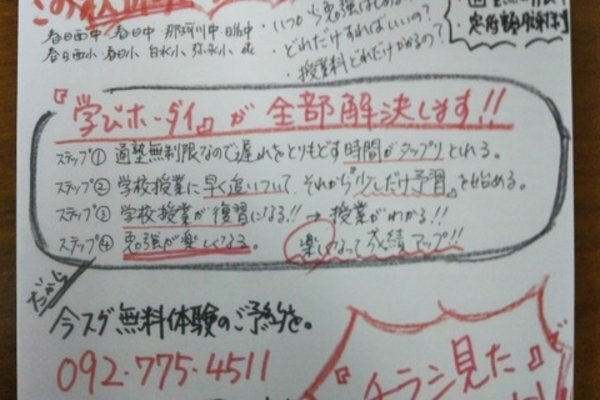 春日西中・春日中 那珂川中・日佐中
春日西小・春日小・白水小・弥永小 etc
・いつから勉強はじめる？
・どれだけすればいいの？
・授業料どれだけかかるの？
『学びホーダイ』が全部解決します!!
ステップ① 通塾無制限なので遅れをとりもどす時間がタップリとれる。
ステップ② 学校授業に早く追いついて、それから『少しだけ予習』を始める。
ステップ③ 学校授業が復習になる!! → 授業がわかる!!
ステップ④ 勉強が楽しくなる。 楽しくなって成績アップ!!
だから
今スグ無料体験のご予約を。
092-775-4511
『チラシ見た』